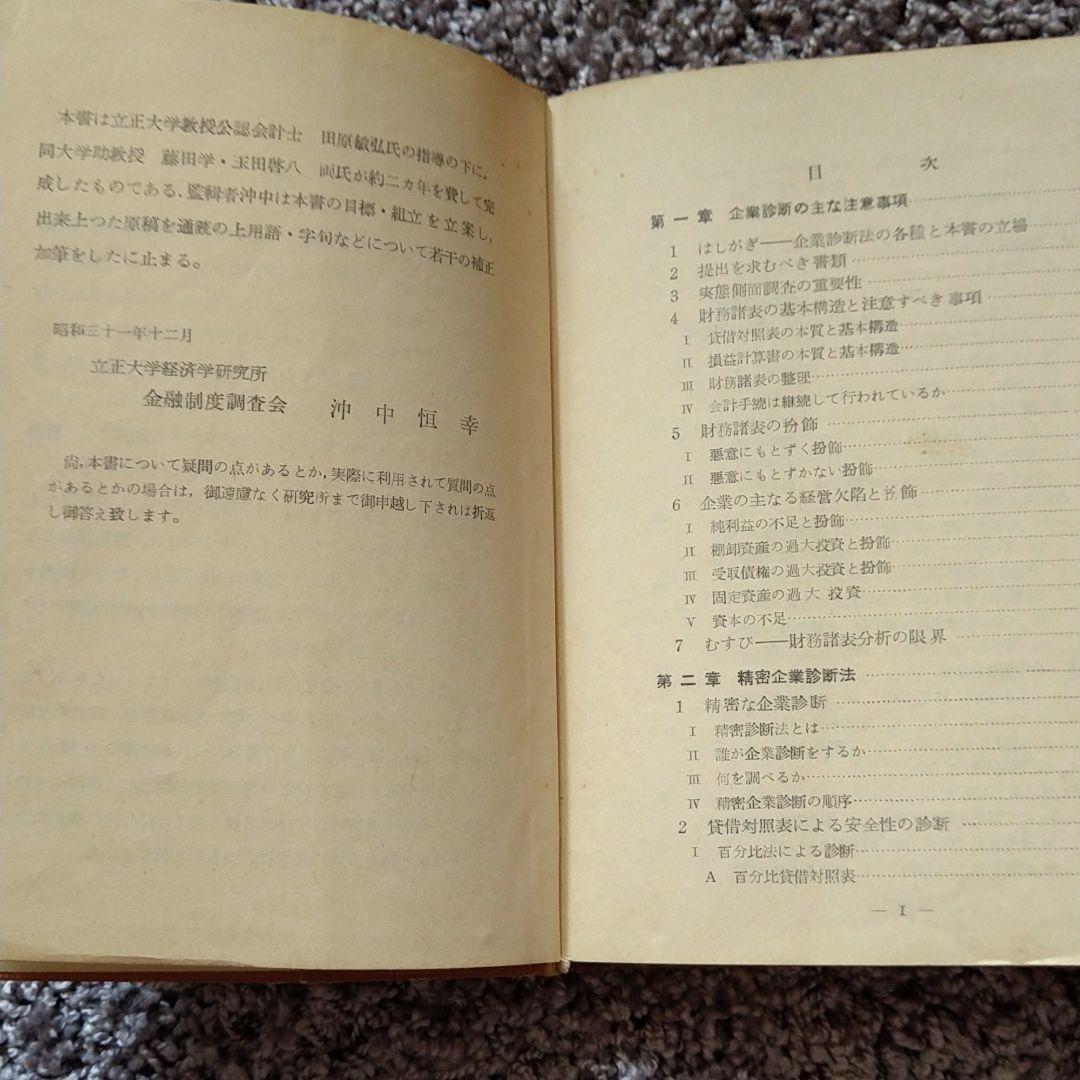 本書は立正大学教授公認会計士 田原敏弘氏の指導の下に,
同大学助教授 藤田学・玉田啓八 両氏が約二カ年を費して完
成したものである. 監輯者沖中は本書の目標・組立を立案し,
出来上つた原稿を通読の上用語・字句などについて若干の補正
加筆をしたに止まる。
昭和三十一年十二月
立正大学経済学研究所
金融制度調査会 沖中恒幸
尚, 本書について疑問の点があるとか, 実際に利用されて質問の点
があるとかの場合は, 御遠慮なく研究所まで御申越し下されば折返
し御答え致します。
目次
第一章 企業診断の主な注意事項
1 はしがき——企業診断法の各種と本書の立場
2 提出を求むべき書類
3 実態側面調査の重要性
4 財務諸表の基本構造と注意すべき事項
I 貸借対照表の本質と基本構造
II 損益計算書の本質と基本構造
III 財務諸表の整理
IV 会計手続は継続して行われているか
5 財務諸表の扮飾
I 悪意にもとずく扮飾
II 悪意にもとずかない扮飾
6 企業の主なる経営欠陥と扮飾
I 純利益の不足と扮飾
II 棚卸資産の過大投資と扮飾
III 受取債権の過大投資と扮飾
IV 固定資産の過大投資
V 資本の不足
7 むすび——財務諸表分析の限界
第二章 精密企業診断法
1 精密な企業診断
I 精密診断法とは
II 誰が企業診断をするか
III 何を調べるか
IV 精密企業診断の順序
2 貸借対照表による安全性の診断
I 百分比法による診断
A 百分比貸借対照表
— I —